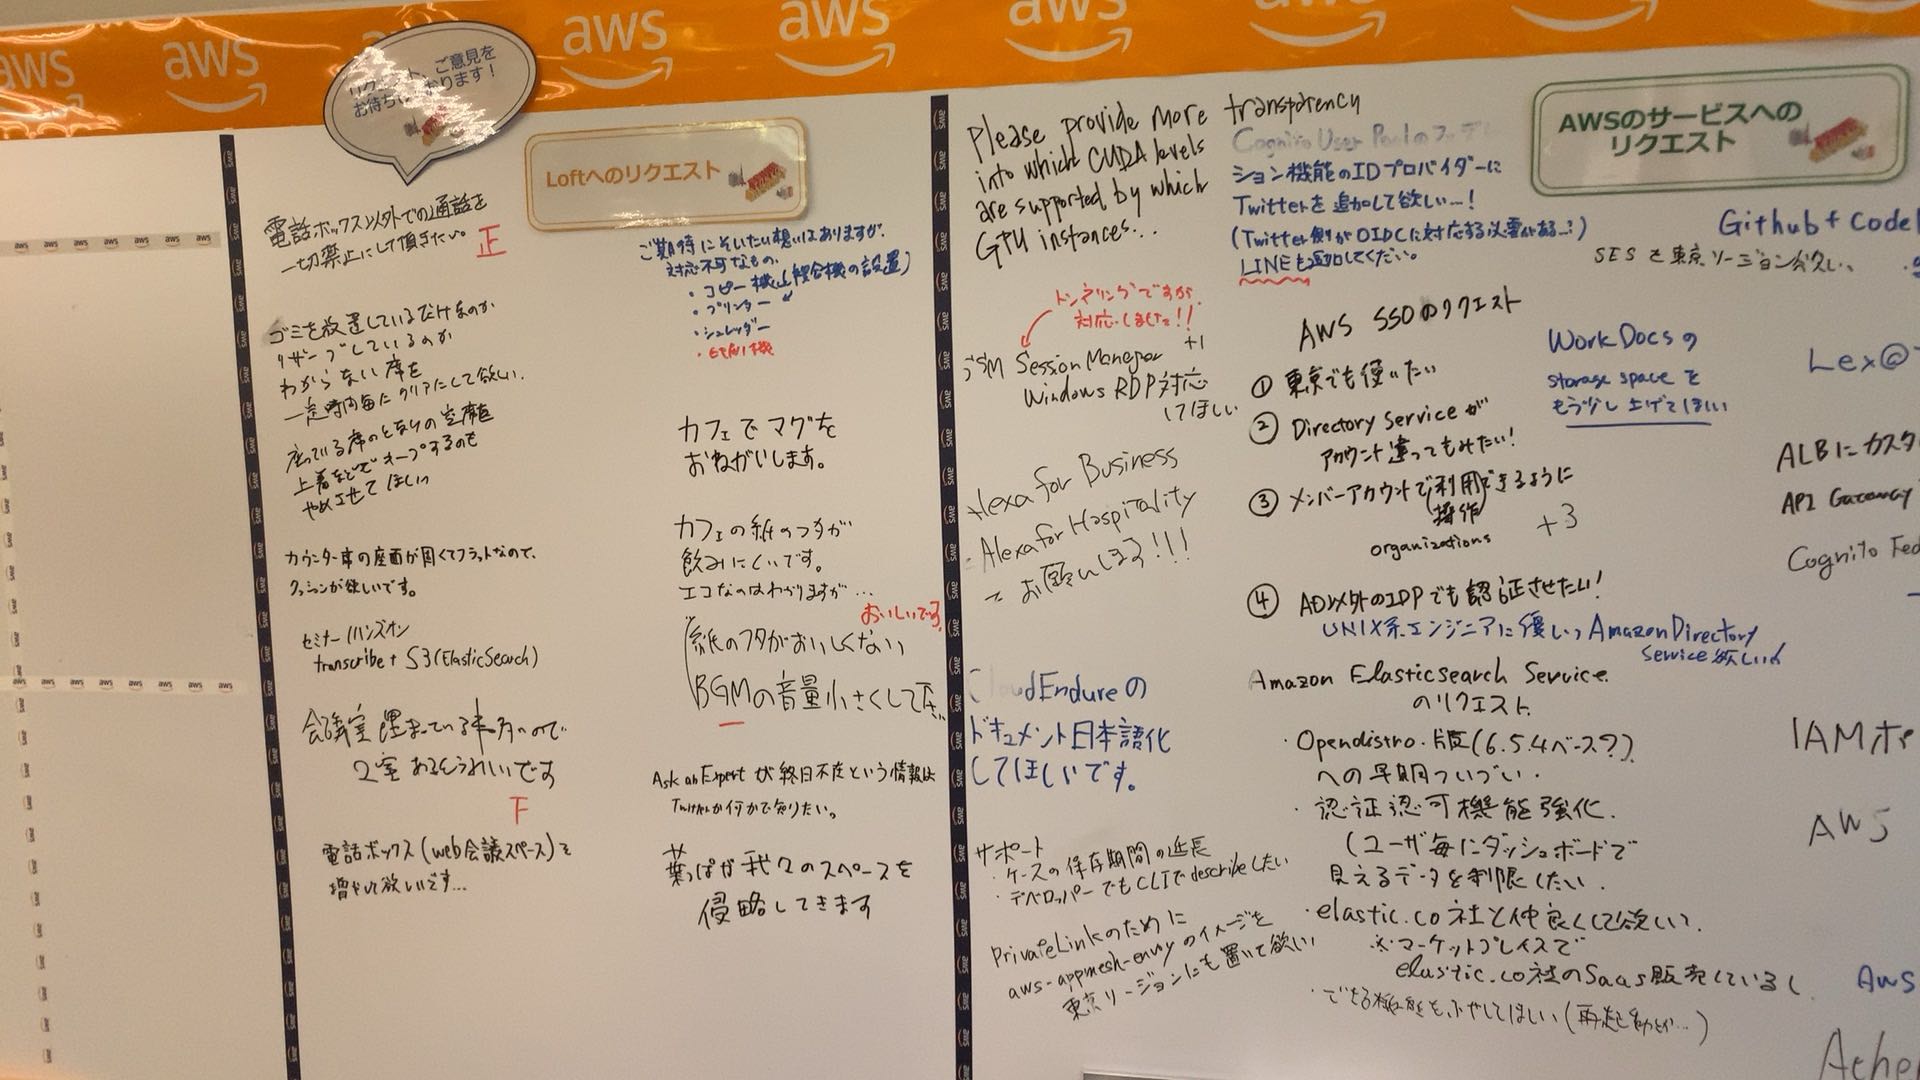 aws aws aws aws aws aws aws
リクエスト、ご意見を
お待ちしております！
Loftへのリクエスト
電話ボックス以外での通話を
一切禁止にして頂きたい。 正
ゴミを放置しているだけなのか
リザーブしているのか
わからない席を
一定時間毎にクリアにして欲しい.
座っている席のとなりの空席を
上着などでキープするのも
やめさせてほしい
カウンター席の座面が固くてフラットなので、
クッションが欲しいです。
セミナー/ハンズオン
transcribe + S3(ElasticSearch)
会議室埋まっている事多いので
2室あるとうれしいです
下
電話ボックス(web会議スペース)を
増やして欲しいです...
ご期待にそいたい想いはありますが、
対応不可なもの、
・コピー機(複合機の設置)
・プリンター
・シュレッダー
・自販機
カフェでマグを
おねがいします。
カフェの紙のフタが
飲みにくいです。
エコなのはわかりますが...
おいしいです
紙のフタがおいしくない
BGMの音量小さくして下さい
Ask an Expert が終日不在という情報は
Twitterか何かで知りたい。
葉っぱが我々のスペースを
侵略してきます
Please provide more transparency
into which CUDA levels
are supported by which
GPU instances...
トンネリングですが
対応しました!!
SSM Session Manager +1
Windows RDP対応
してほしい
Alexa for Business
Alexa for Hospitality
お願いします!!!
CloudEndureの
ドキュメント日本語化
してほしいです。
サポート
・ケースの保存期間の延長
・デベロッパーでもCLIでdescribeしたい
PrivateLinkのために
aws-appmesh-envoyのイメージを
東京リージョンにも置いて欲しい
Cognito User Poolのフェデレー
ション機能のIDプロバイダーに
Twitterを追加して欲しい...!
(Twitter側がOIDCに対応する必要がある...?)
LINEも追加してください。
AWS SSOのリクエスト
① 東京でも使いたい
② Directory Serviceが
アカウント違ってもみたい!
③ メンバーアカウントで利用できるように
操作
organizations +3
④ AD以外のIDPでも認証させたい!
UNIX系エンジニアに優しいAmazonDirectory
Service欲しい
Amazon Elasticsearch Service
のリクエスト
・Opendistro.版(6.5.4ベース?)
への早期ついづい.
・認証認可機能強化.
(ユーザ毎にダッシュボードで
見えるデータを制限したい.
・elastic.co社と仲良くして欲しい.
※マーケットプレイスで
elastic.co社のSaas販売しているし
・できる機能もふやしてほしい(再起動とか...)
AWSのサービスへの
リクエスト
Github + Code
SES を東京リージョン
WorkDocsの
storage spaceを
もう少し上げてほしい
Lex@
ALBにカスタ
API Gateway
Cognito Fed
IAMポ
AWS
AWS
Athe